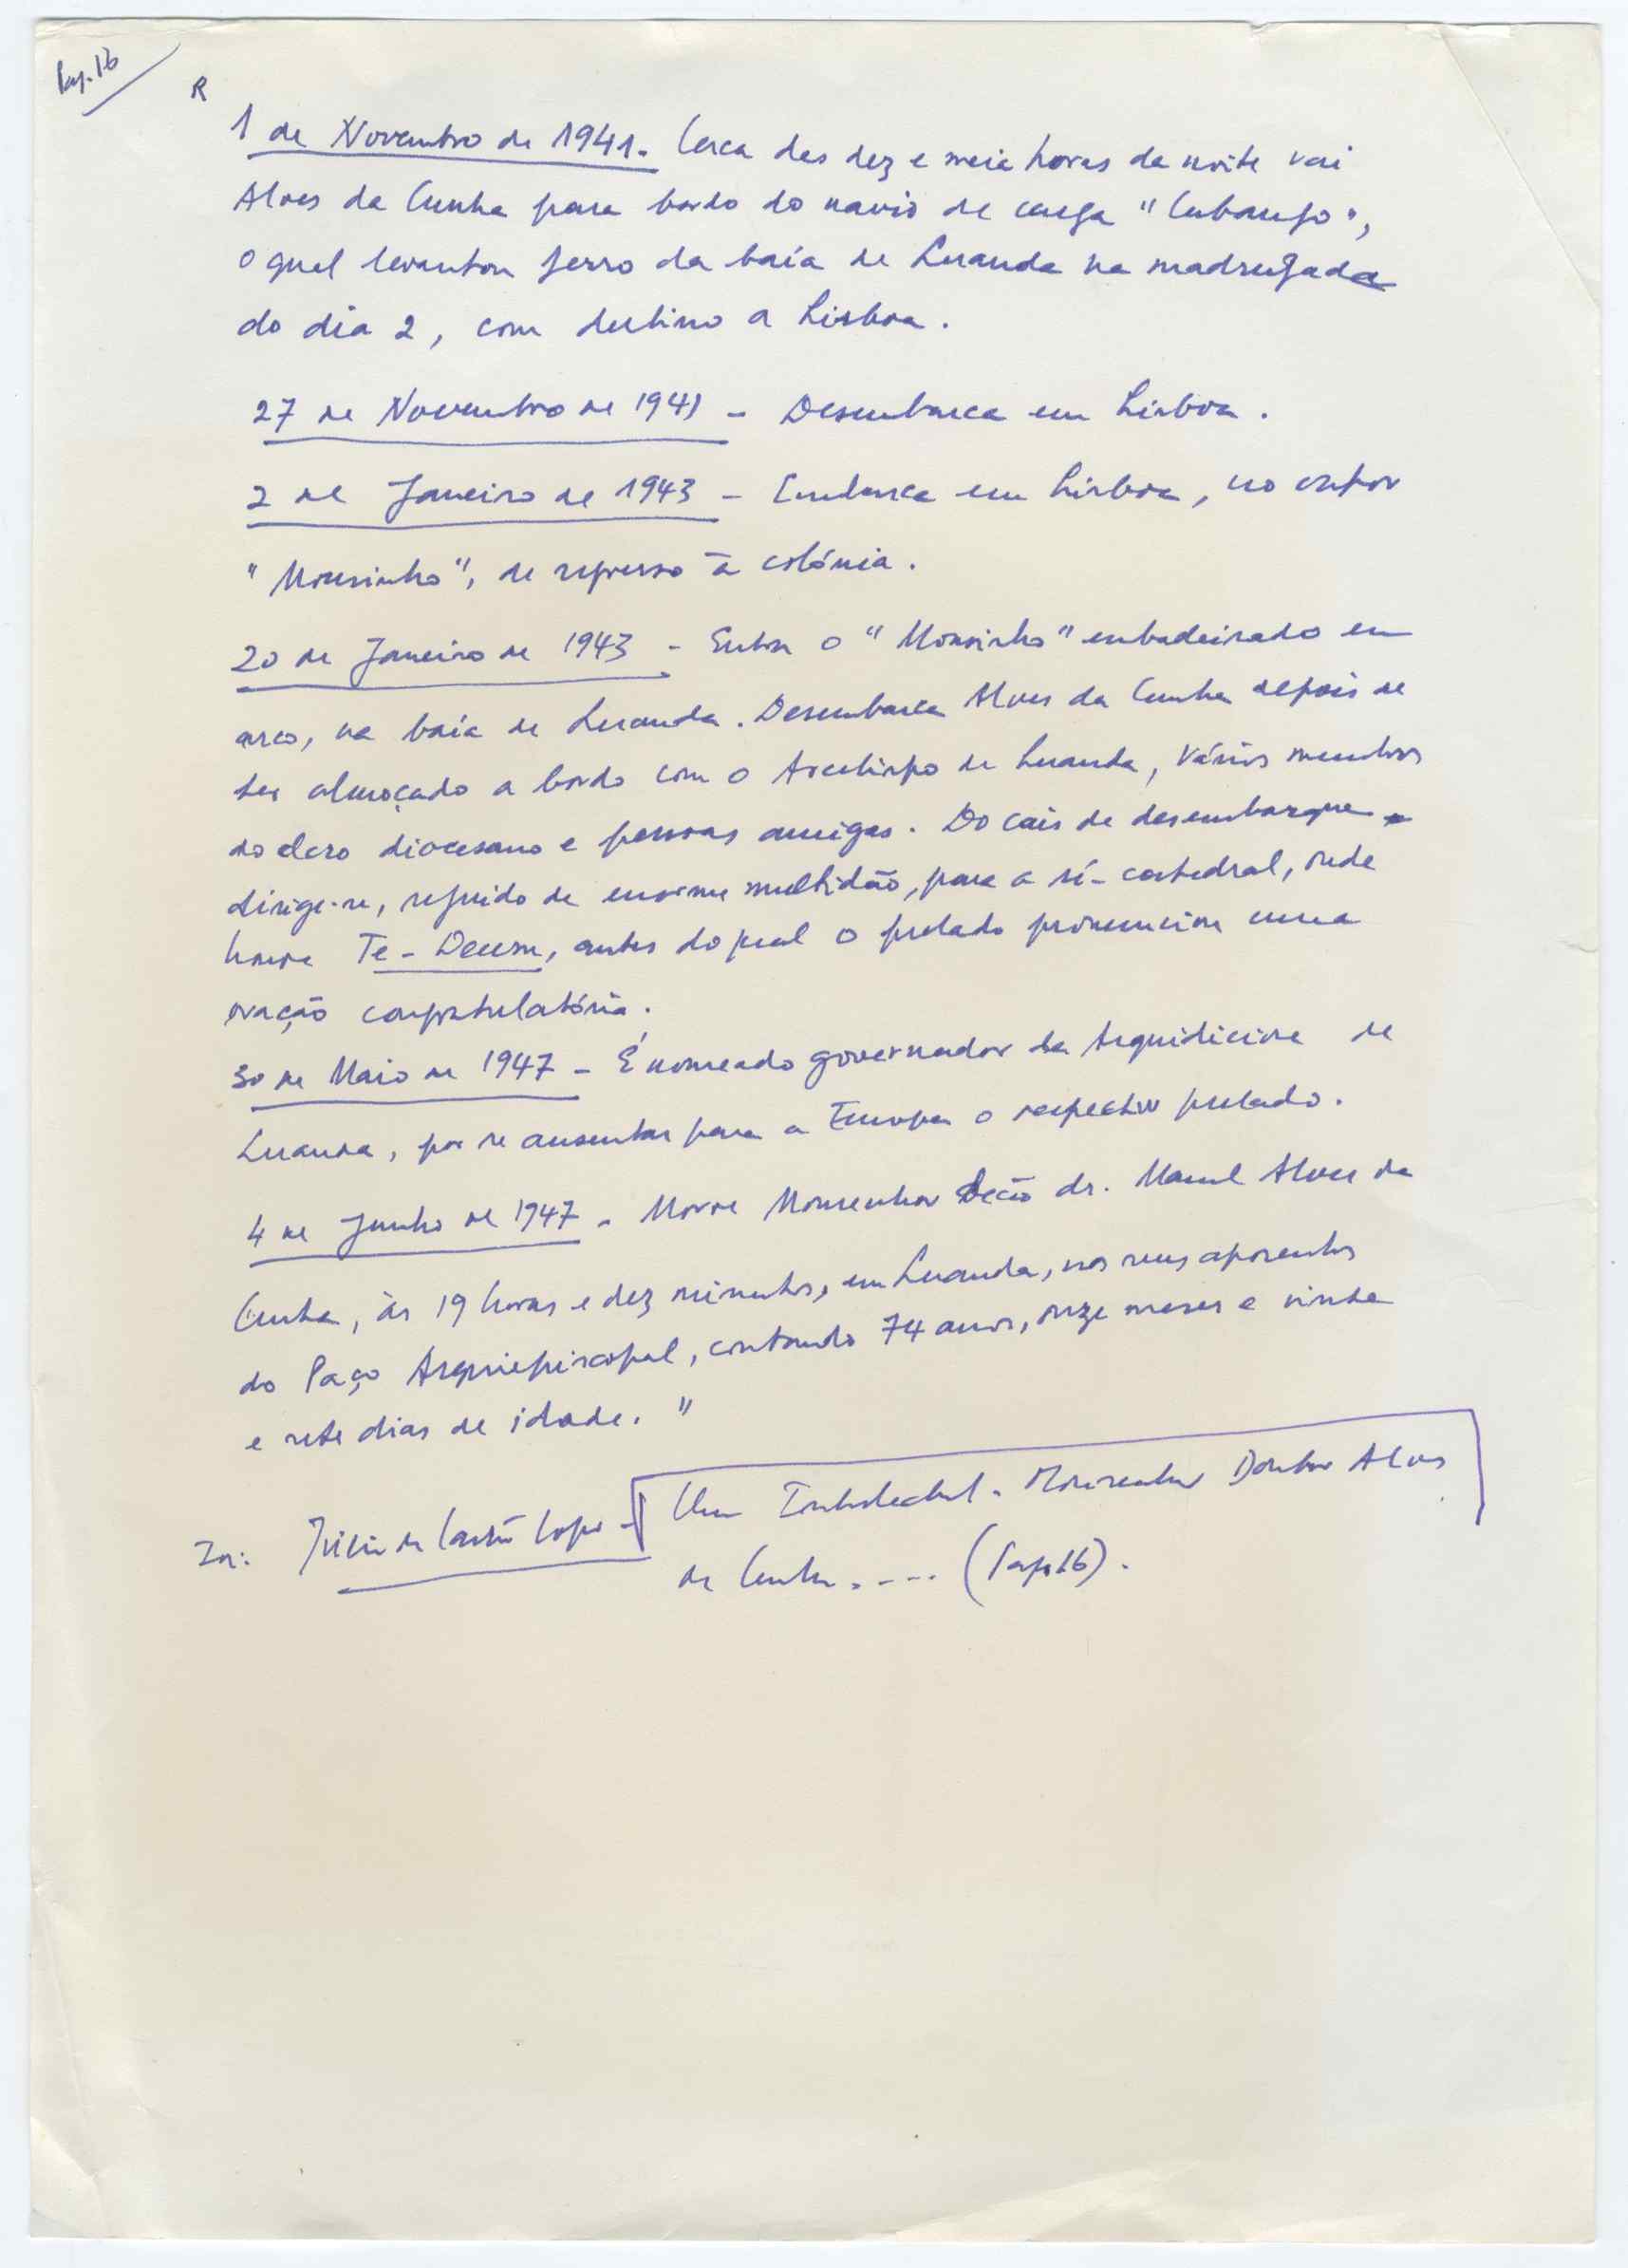 Pág. 16
R
1 de Novembro de 1941. Cerca das dez e meia horas da noite vai
Alves da Cunha para bordo do navio de carga "Cubango",
o qual levantou ferro da baía de Luanda na madrugada
do dia 2, com destino a Lisboa.
27 de Novembro de 1941 - Desembarca em Lisboa.
2 de Janeiro de 1943 - Embarca em Lisboa, no vapor
"Mousinho", de regresso à colónia.
20 de Janeiro de 1943 - Entra o "Mousinho" embadeirado em
arco, na baía de Luanda. Desembarca Alves da Cunha depois de
ter almoçado a bordo com o Arcebispo de Luanda, vários membros
do clero diocesano e pessoas amigas. Do cais de desembarque
dirige-se, seguido de enorme multidão, para a sé-catedral, onde
houve Te-Deum, antes do qual o prelado pronunciou uma
oração congratulatória.
30 de Maio de 1947 - É nomeado governador da Arquidiciose de
Luanda, por se ausentar para a Europa o respectivo prelado.
4 de Junho de 1947 - Morre Monsenhor Deão dr. Manuel Alves da
Cunha, às 19 horas e dez minutos, em Luanda, nos seus aposentos
do Paço Arquiepiscopal, contando 74 anos, onze meses e vinte
e sete dias de idade."
In: Júlio de Castro Lopo - Um Intelectual - Monsenhor Doutor Alves
da Cunha.... (Pág. 16).